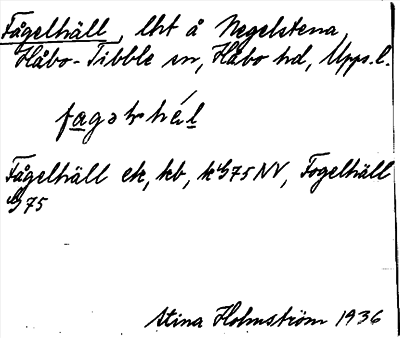 Fågelhäll, lht å Negelstena,
Håbo-Tibble sn, Håbo hd, Upps. l.
Fågelhäll ek, kb, k G75 NV, Fogelhäll
G75
Stina Holmström 1936